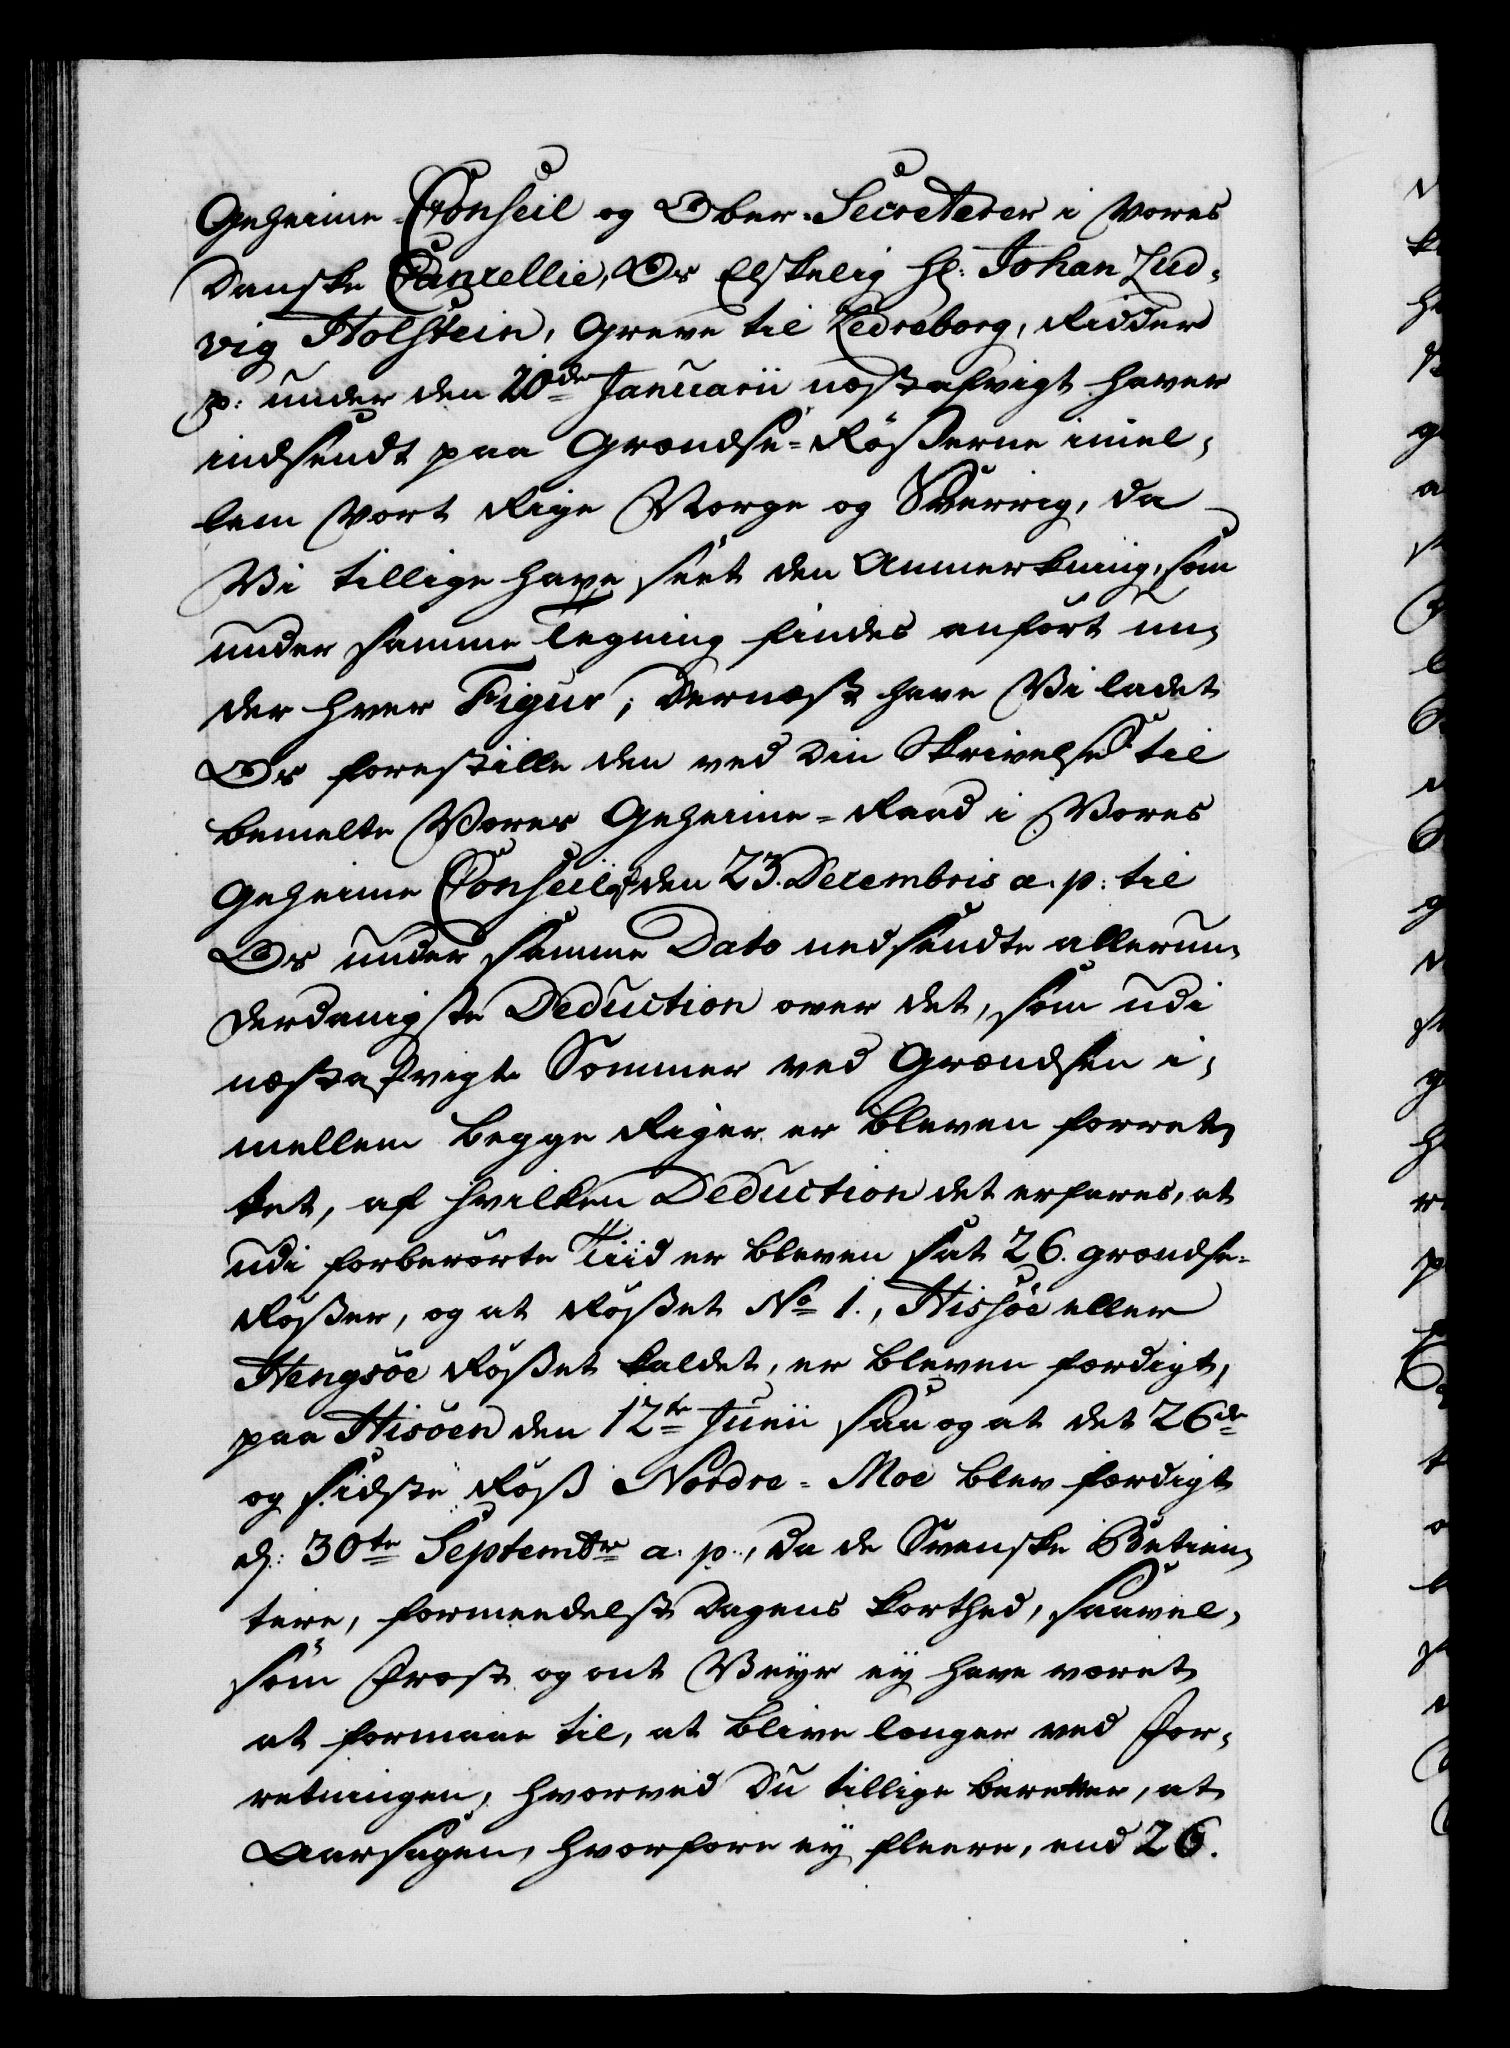 Geheime-Conseil og Ober-Secreterer i Vores
Danske Cancellie, Os Elskelig Hr: Johan Lud-
vig Holstein, Greve til Ledreborg, Ridder
p: under den 20de Januarii næstafvigt haver
indsendt paa Grændse-Rößerne imel-
lem Vort Rige Norge og Sverrig, da
Vi tillige have seet den Anmerkning, som
under samme Tegning findes anført un-
der hver Figur; Dernæst have Vi ladet
Os forestille den ved Din Skrivelse til
bemelte Vores Geheime-Raad i Vores
Geheime Conseil af den 23. Decembris a. p: til
Os under samme Dato nedsendte allerun-
derdanigste Deduction over det, som udi
næstafvigte Sommer ved Grændsen i-
mellem begge Riger er bleven forret-
tet, af hvilken Deduction det erfares, at
udi forberørte Tiid er bleven sat 26. grændse-
Rößer, og at Rößet No 1., Hisøe eller
Hengsöe Rößet kaldet, er bleven færdigt,
paa Hisöen den 12te Junii saa og at det 26de
og sidste Röß Nordre-Moe blev færdigt
d: 30te Septembr a. p., da de Svenske Betien-
tere, formedelst Dagens korthed, saavel-
som Frost og ont Veyr ey have været
at formaae til, at blive længer ved For-
retningen, hvorved Du tillige beretter, at
Aarsagen, hvorfore ey fleere, end 26.